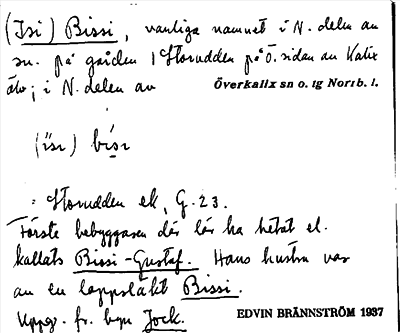 (Isi) Bissi, vanliga namnet i N. delen av
sn. på gården 1 Storudden på Ö. sidan av Kalix
älv; i N. delen av Överkalix sn o. tg Norrb. l.
(isi) bisi
= Storudden ek, G. 23.
Förste bebyggaren där lär ha hetat el.
kallats Bissi-Gustaf. Hans hustru var
av en lappsläkt Bissi.
Uppg. fr. byn Jock. EDVIN BRÄNNSTRÖM 1937